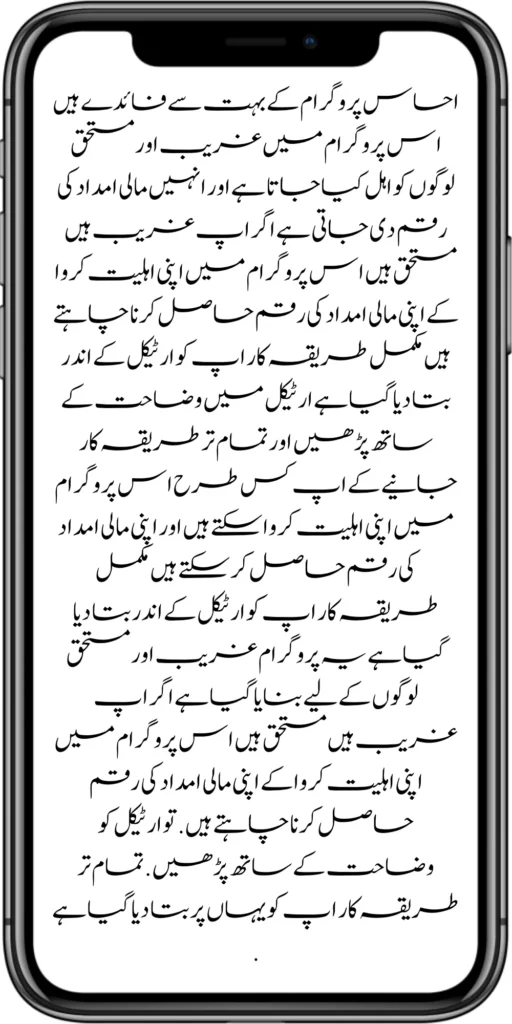 احساس پروگرام کے بہت سے فائدے ہیں
اس پروگرام میں غریب اور مستحق
لوگوں کو اہل کیا جاتا ہے اور انہیں مالی امداد کی
رقم دی جاتی ہے اگر اپ غریب ہیں
مستحق ہیں اس پروگرام میں اپنی اہلیت کروا
کے اپنی مالی امداد کی رقم حاصل کرنا چاہتے
ہیں مکمل طریقہ کار اپ کو ارٹیکل کے اندر
بتا دیا گیا ہے ارٹیکل میں وضاحت کے
ساتھ پڑھیں اور تمام تر طریقہ کار
جانیے کے اپ کس طرح اس پروگرام
میں اپنی اہلیت کروا سکتے ہیں اور اپنی مالی امداد
کی رقم حاصل کر سکتے ہیں مکمل
طریقہ کار اپ کو ارٹیکل کے اندر بتا دیا
گیا ہے یہ پروگرام غریب اور مستحق
لوگوں کے لیے بنایا گیا ہے اگر اپ
غریب ہیں مستحق ہیں اس پروگرام میں
اپنی اہلیت کروا کے اپنی مالی امداد کی رقم
حاصل کرنا چاہتے ہیں. تو ارٹیکل کو
وضاحت کے ساتھ پڑھیں. تمام تر
طریقہ کار اپ کو یہاں پر بتا دیا گیا ہے
.